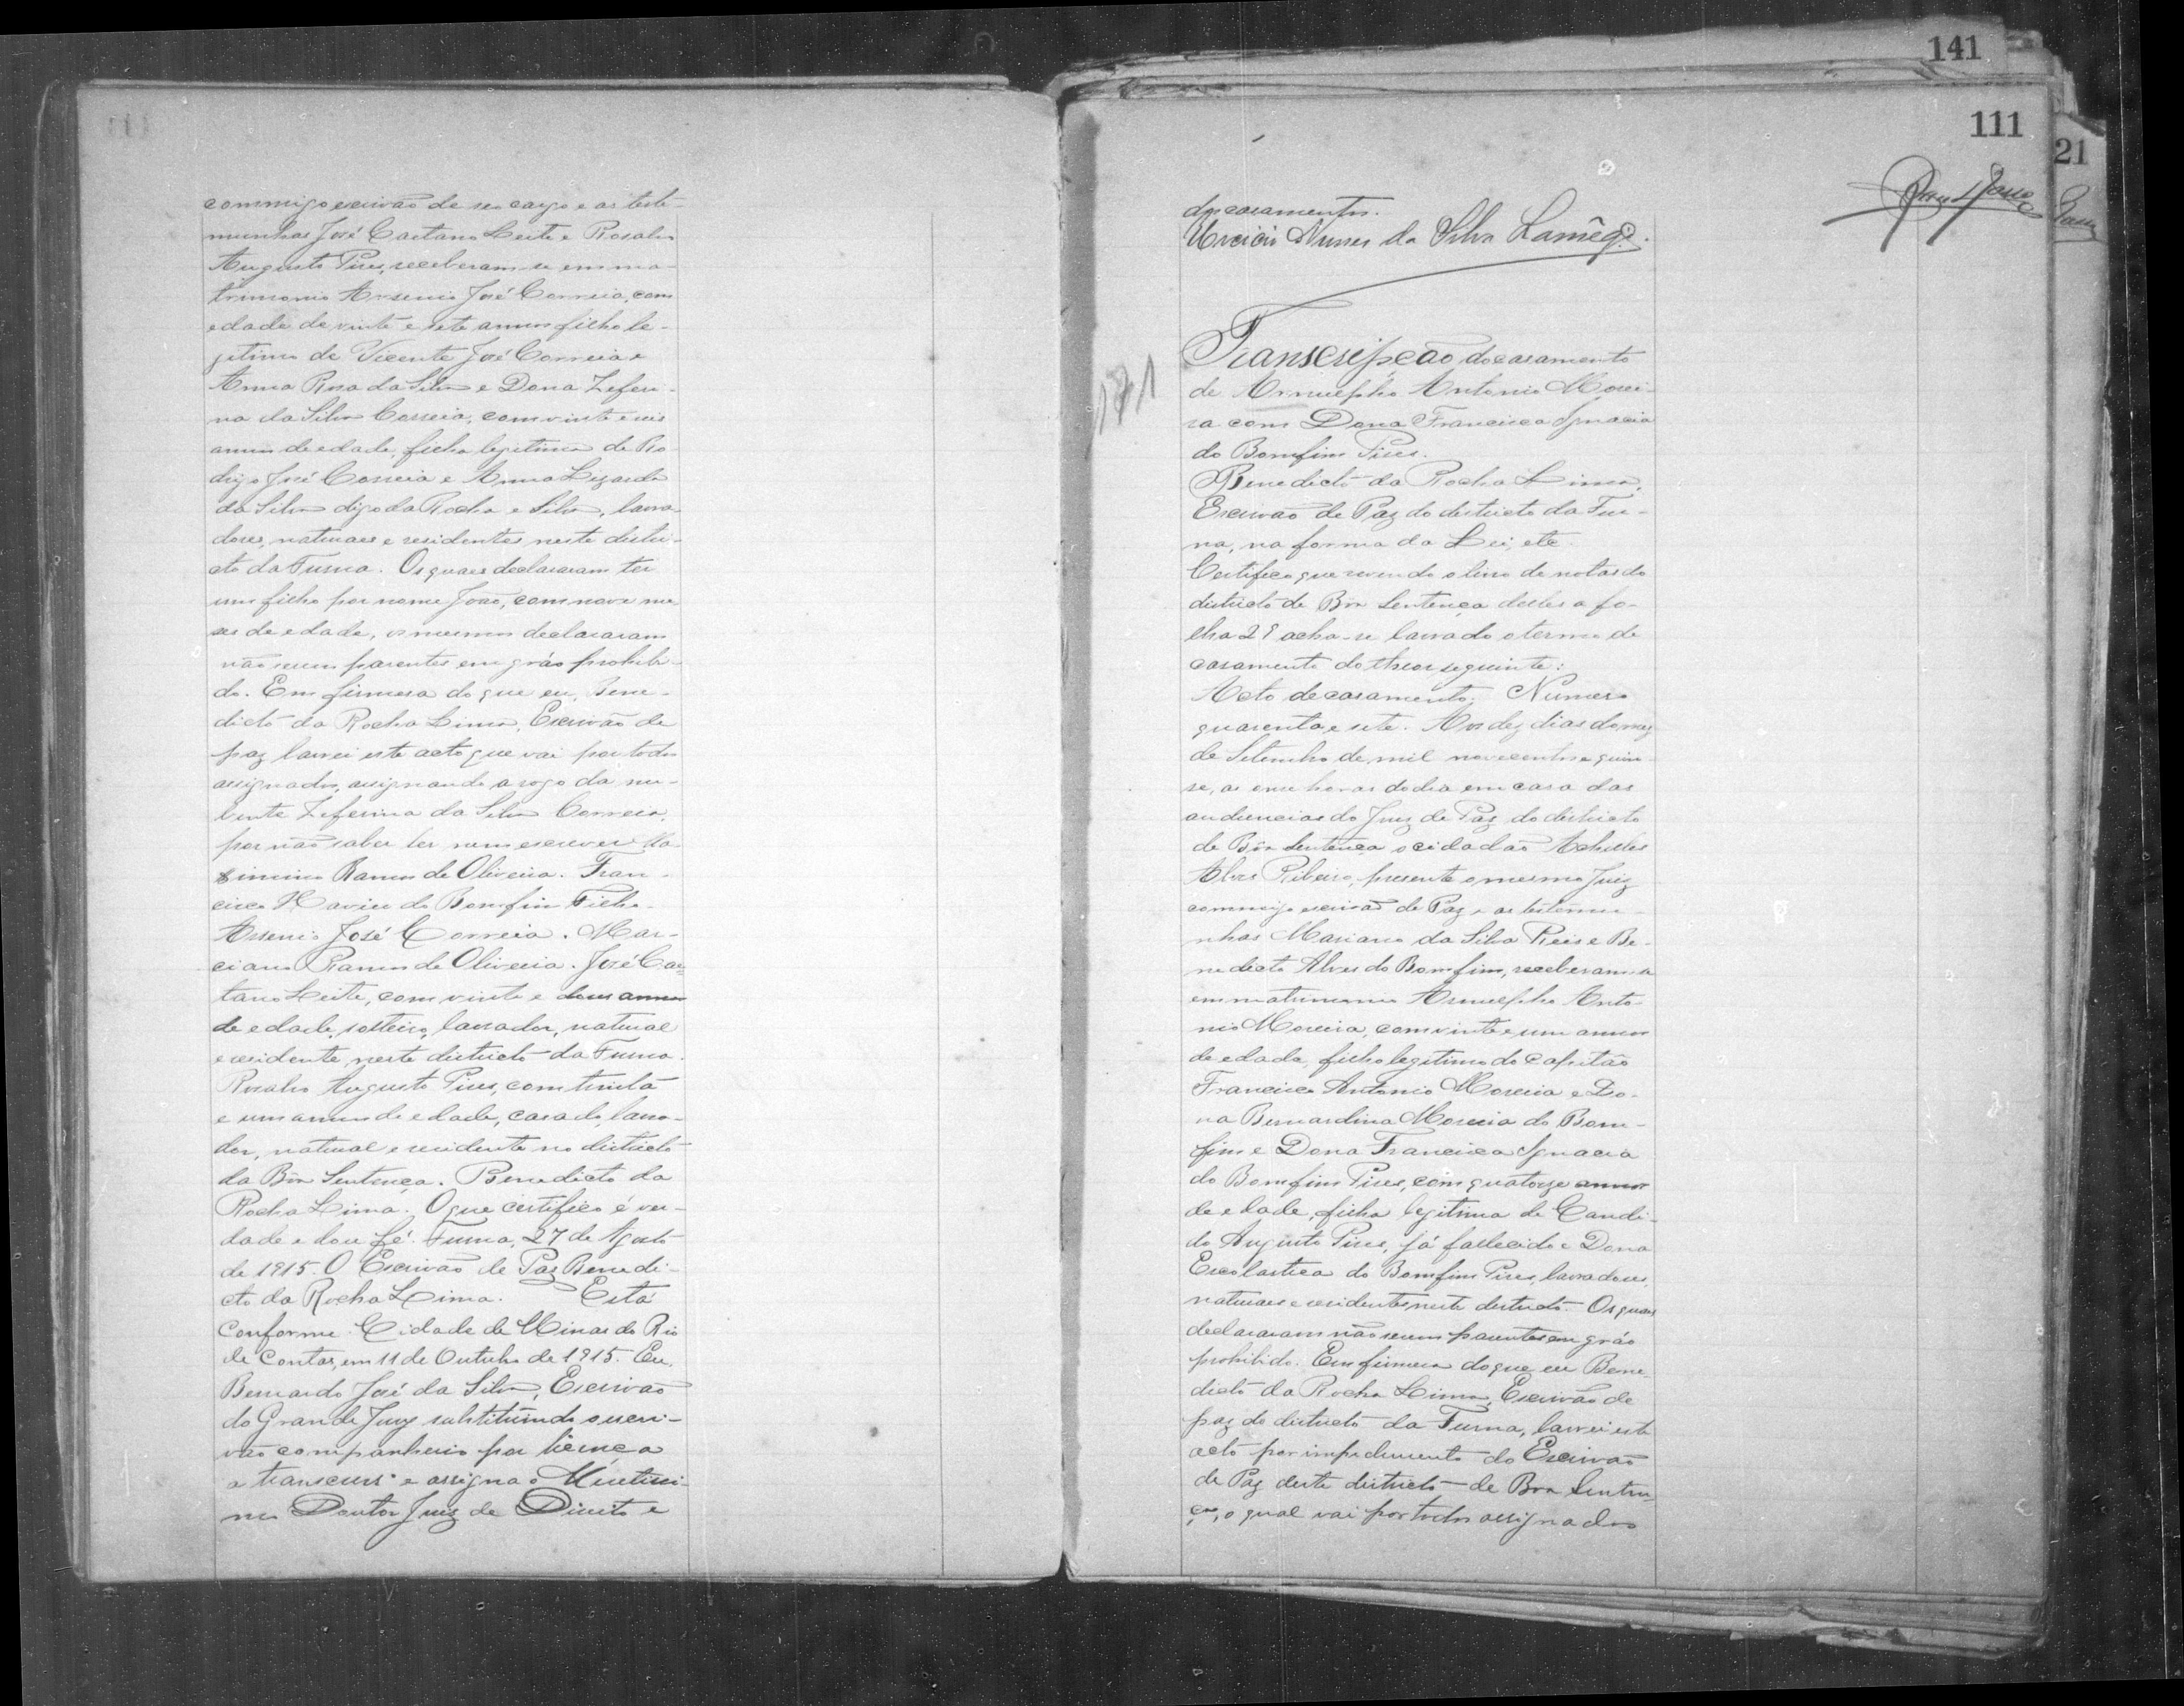 commigo escrivão de seo cargo e as teste-
munhas José Caetano Leite e Rosalvo
Augusto Pires, receberam-se em ma-
trimonio Arsenio José Correia, com
edade de vinte e sete annos filho le-
gitimo de Vicente José Correia e
Anna Rosa da Silva e Dona Zeferi-
na da Silva Correia, com vinte e seis
annos de edade, filha legitima de Ro
digo José Correia e Anna Lizarda
da Silva digo da Rocha e Silva, lavra-
dores, naturaes e residentes neste distri-
cto da Furna. Os quaes declararam ter
um filho por nome João, com nove me-
ses de edade, os mesmos declararam
não serem parentes em gráo prohibi-
do. Em firmesa do que eu, Bene-
dicto da Rocha Lima, Escrivão de
paz lavrei este acto que vai por todos
assignados, assignando a rogo da nu-
bente Zeferina da Silva Correia,
por não saber ler nem escrever Ma
ximino Ramos de Oliveira. Fran-
cisco Xavier do Bomfim Filho.
Arsenio José Correia. Mar-
ciano Ramos de Oliveira. José Cae-
tano Leite, com vinte e dous annos
de edade, solteiro, lavrador, natural
e residente neste districto da Furna.
Rosalvo Augusto Pires, com trinta
e um annos de edade, casado, lavra-
dor, natural e residente no districto
da Bôa Sentença. Benedicto da
Rocha Lima. O que certifico é ver-
dade e dou fé. Furna, 27 de Agosto
de 1915. O Escrivão de Paz Benedi-
cto da Rocha Lima. Está
Conforme. Cidade de Minas do Rio
de Contas, em 11 de Outubro de 1915. Eu,
Bernardo José da Silva, Escrivão
do Grande Jury substituindo o escri-
vão companheiro por licença
a transcrevi e assigna o Meritissi-
mo Doutor Juiz de Direito e
141
111
21
dos casamentos.
Nunes da Silva Lamêgo.
181
Transcripção do casamento
de Arnulpho Antonio Morei-
ra com Dona Francisca Ignacia
do Bomfim Pires.
Benedicto da Rocha Lima,
Escrivão de Paz do districto da Fur-
na, na forma da Lei, etc.
Certifico que revendo o livro de notas do
districto de Bôa Sentença delles a fo-
lha 28 acha-se lavrado o termo de
casamento do theor seguinte:
Acto de casamento. Numero
quarenta e sete. Aos dez dias do mez
de Setembro de mil novecentos e quin-
se, as onse horas do dia em casa das
audiencias do Juiz de Paz do districto
de Bôa Sentença o cidadão Achilles
Alves Ribeiro, presente o mesmo Juiz
commigo escrivão de Paz e as testemu-
nhas Mariano da Silva Reis e Be-
nedicto Alves do Bomfim, receberam-se
em matrimonio Arnulpho Anto-
nio Moreira, com vinte e um annos
de edade, filho legitimo do Capitão
Francisco Antonio Moreira e Do-
na Bernardina Moreira do Bom-
fim e Dona Francisca Ignacia
do Bomfim Pires, com quatorze annos
de edade, filha legitima de Candi-
do Augusto Pires, já fallecido e Dona
Escolastica do Bomfim Pires, lavradores,
naturaes e residentes neste destricto. Os quaes
declararam não serem parentes em gráo
prohibido. Em firmesa do que, eu Bene
dicto da Rocha Lima, Escrivão de
paz do districto da Furna, lavrei este
acto por impedimento do Escrivão
de Paz deste districto de Bôa Senten-
ça, o qual vai por todos assignados